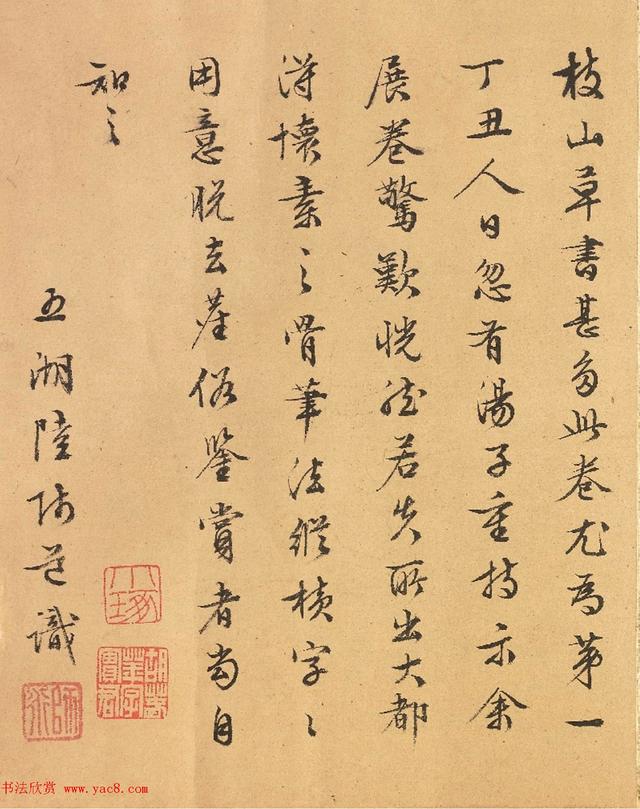 枝山草書甚多此卷尤為第一
丁丑人日忽有湯子重持示余
展卷驚歎恍然若失所出大都
得懷素之骨筆法縱横字〻
用意脱去塵俗鑒賞者当自
知之
五湖陸師道識
師道
书法欣赏 www.yac8.com